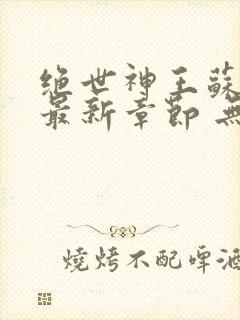 绝世神王蘇
最新章節 無
燒烤不配啤酒